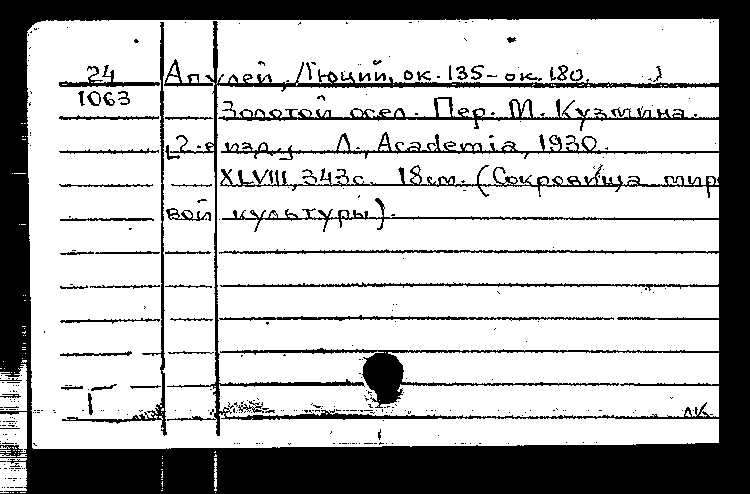 24 Апулей, Люций, ок. 135 - ок. 180.
1063 Золотой осел. Пер. М. Кузмина.
[2-е изд.]. Л., Academia, 1930.
XLVIII, 343с. 18см. (Сокровища миро
вой культуры).
лк